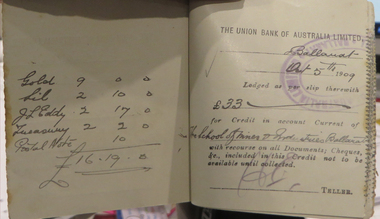 Gold 9 0 0
Sil 2 10 0
J L Eddy 2 17 0
Treasury 2 2 0
Postal Note 10
£16.19.0
THE UNION BANK OF AUSTRALIA LIMITED,
Ballarat
Oct 5th 1909
Lodged as per slip therewith
£33
for Credit in account Current of
The School of Mines Ballarat
with recourse on all Documents; Cheques,
&c., included in this Credit not to be
available until collected.
TELLER.